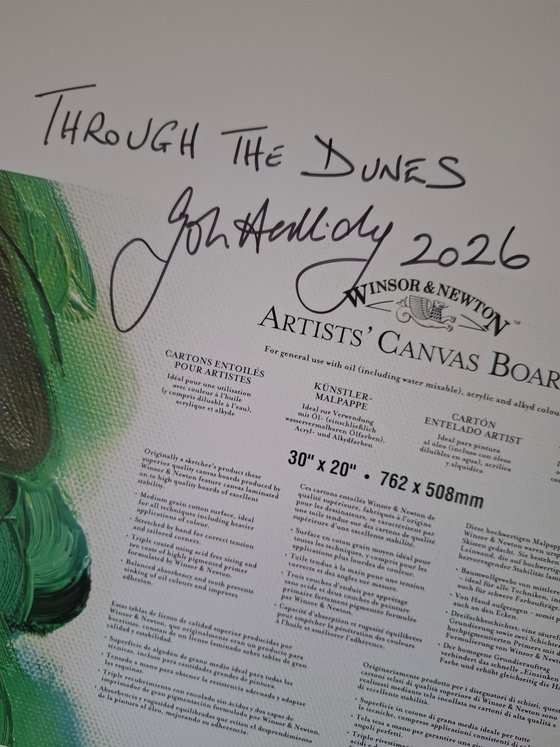 THROUGH THE DUNES
2026
WINSOR & NEWTON™
ARTISTS' CANVAS BOAR
For general use with oil (including water mixable), acrylic and alkyd colou
CARTONS ENTOILÉS
POUR ARTISTES
Idéal pour une utilisation
avec couleur à l'huile
(y compris diluable à l'eau),
acrylique et alkyde
KÜNSTLER-
MALPAPPE
Ideal zur Verwendung
mit Öl- (einschließlich
wasservermalbaren Ölfarben),
Acryl- und Alkydfarben
CARTÓN
ENTELADO ARTIST
Ideal para pintura
al óleo (incluso con óleos
diluibles en agua), acrílica
y alquídica
30" x 20" • 762 x 508mm
Originally a sketcher's product these
superior quality canvas boards produced by
Winsor & Newton feature canvas laminated
on to high quality boards of excellent
stability.
• Medium grain cotton surface, ideal
for all techniques including heavier
applications of colour.
• Stretched by hand for correct tension
and tailored corners.
• Triple coated using acid free sizing and
two coats of highly pigmented primer
formulated by Winsor & Newton.
• Balanced absorbency and tooth prevents
sinking of oil colours and improves
adhesion.
Ces cartons entoilés Winsor & Newton de
qualité supérieure, fabriqués à l'origine
pour les dessinateurs, se caractérisent par
une toile tendue sur des cartons de qualité
supérieure d'une excellente stabilité.
• Surface en coton grain moyen idéal pour
toutes les techniques, y compris pour les
applications plus lourdes de couleur.
• Toile tendue à la main pour une tension
correcte et des angles sur mesure.
• Trois couches d'enduit par apprêtage
sans acide et deux couches de peinture
primaire fortement pigmentée formulée
par Winsor & Newton.
• Capacité d'absorption et rugosité équilibrées
pour empêcher la pénétration des couleurs
à l'huile et améliorer l'adhérence.
Diese hochwertigen Malpap
Winsor & Newton waren
Skizzen gedacht. Sie
Leinwand, die auf hochwert
hervorragender Stabilität
• Baumwollgewebe von mittlerer
– ideal für alle Techniken
auch für schwere Farbaufträ
• Von Hand aufgezogen – somit
auch an den Ecken.
• Dreifachbeschichtung: eine säure
Grundierung sowie zwei Schichten
hochpigmentierten Primers
Formulierung von Winsor & New
• Der homogene Grundierauftrag
verhindert das schnelle „Einsinken
Farbe und erhöht gleichzeitig die Ha
Estas tablas de lienzo de calidad superior producidas por
Winsor & Newton, que originalmente eran un producto para
bocetistas, constan de un lienzo laminado sobre tablas de gran
calidad y estabilidad.
• Superficie de algodón de grano medio ideal para todas las
técnicas, incluso para cantidades grandes de pintura.
• Tensado a mano para obtener la resistencia adecuada y adaptar
las esquinas.
• Triple recubrimiento con encolado sin ácidos y dos capas de
imprimador de gran pigmentación formulado por Winsor & Newton.
• Absorbencia y rugosidad equilibradas que evitan el desprendimiento
de la pintura al óleo, mejorando su adherencia.
Originariamente prodotto per i disegnatori di schizzi, ques
cartoni telati di qualità superiore di Winsor & Newton sono
realizzati mediante tela incollata su cartoni di alta qualità
di eccellente stabilità.
• Superficie in cotone di grana media ideale per tutte
le tecniche, comprese applicazioni consistenti di
• Tela tesa a mano per garantire
angoli perfetti.
• Triplo rivestimento